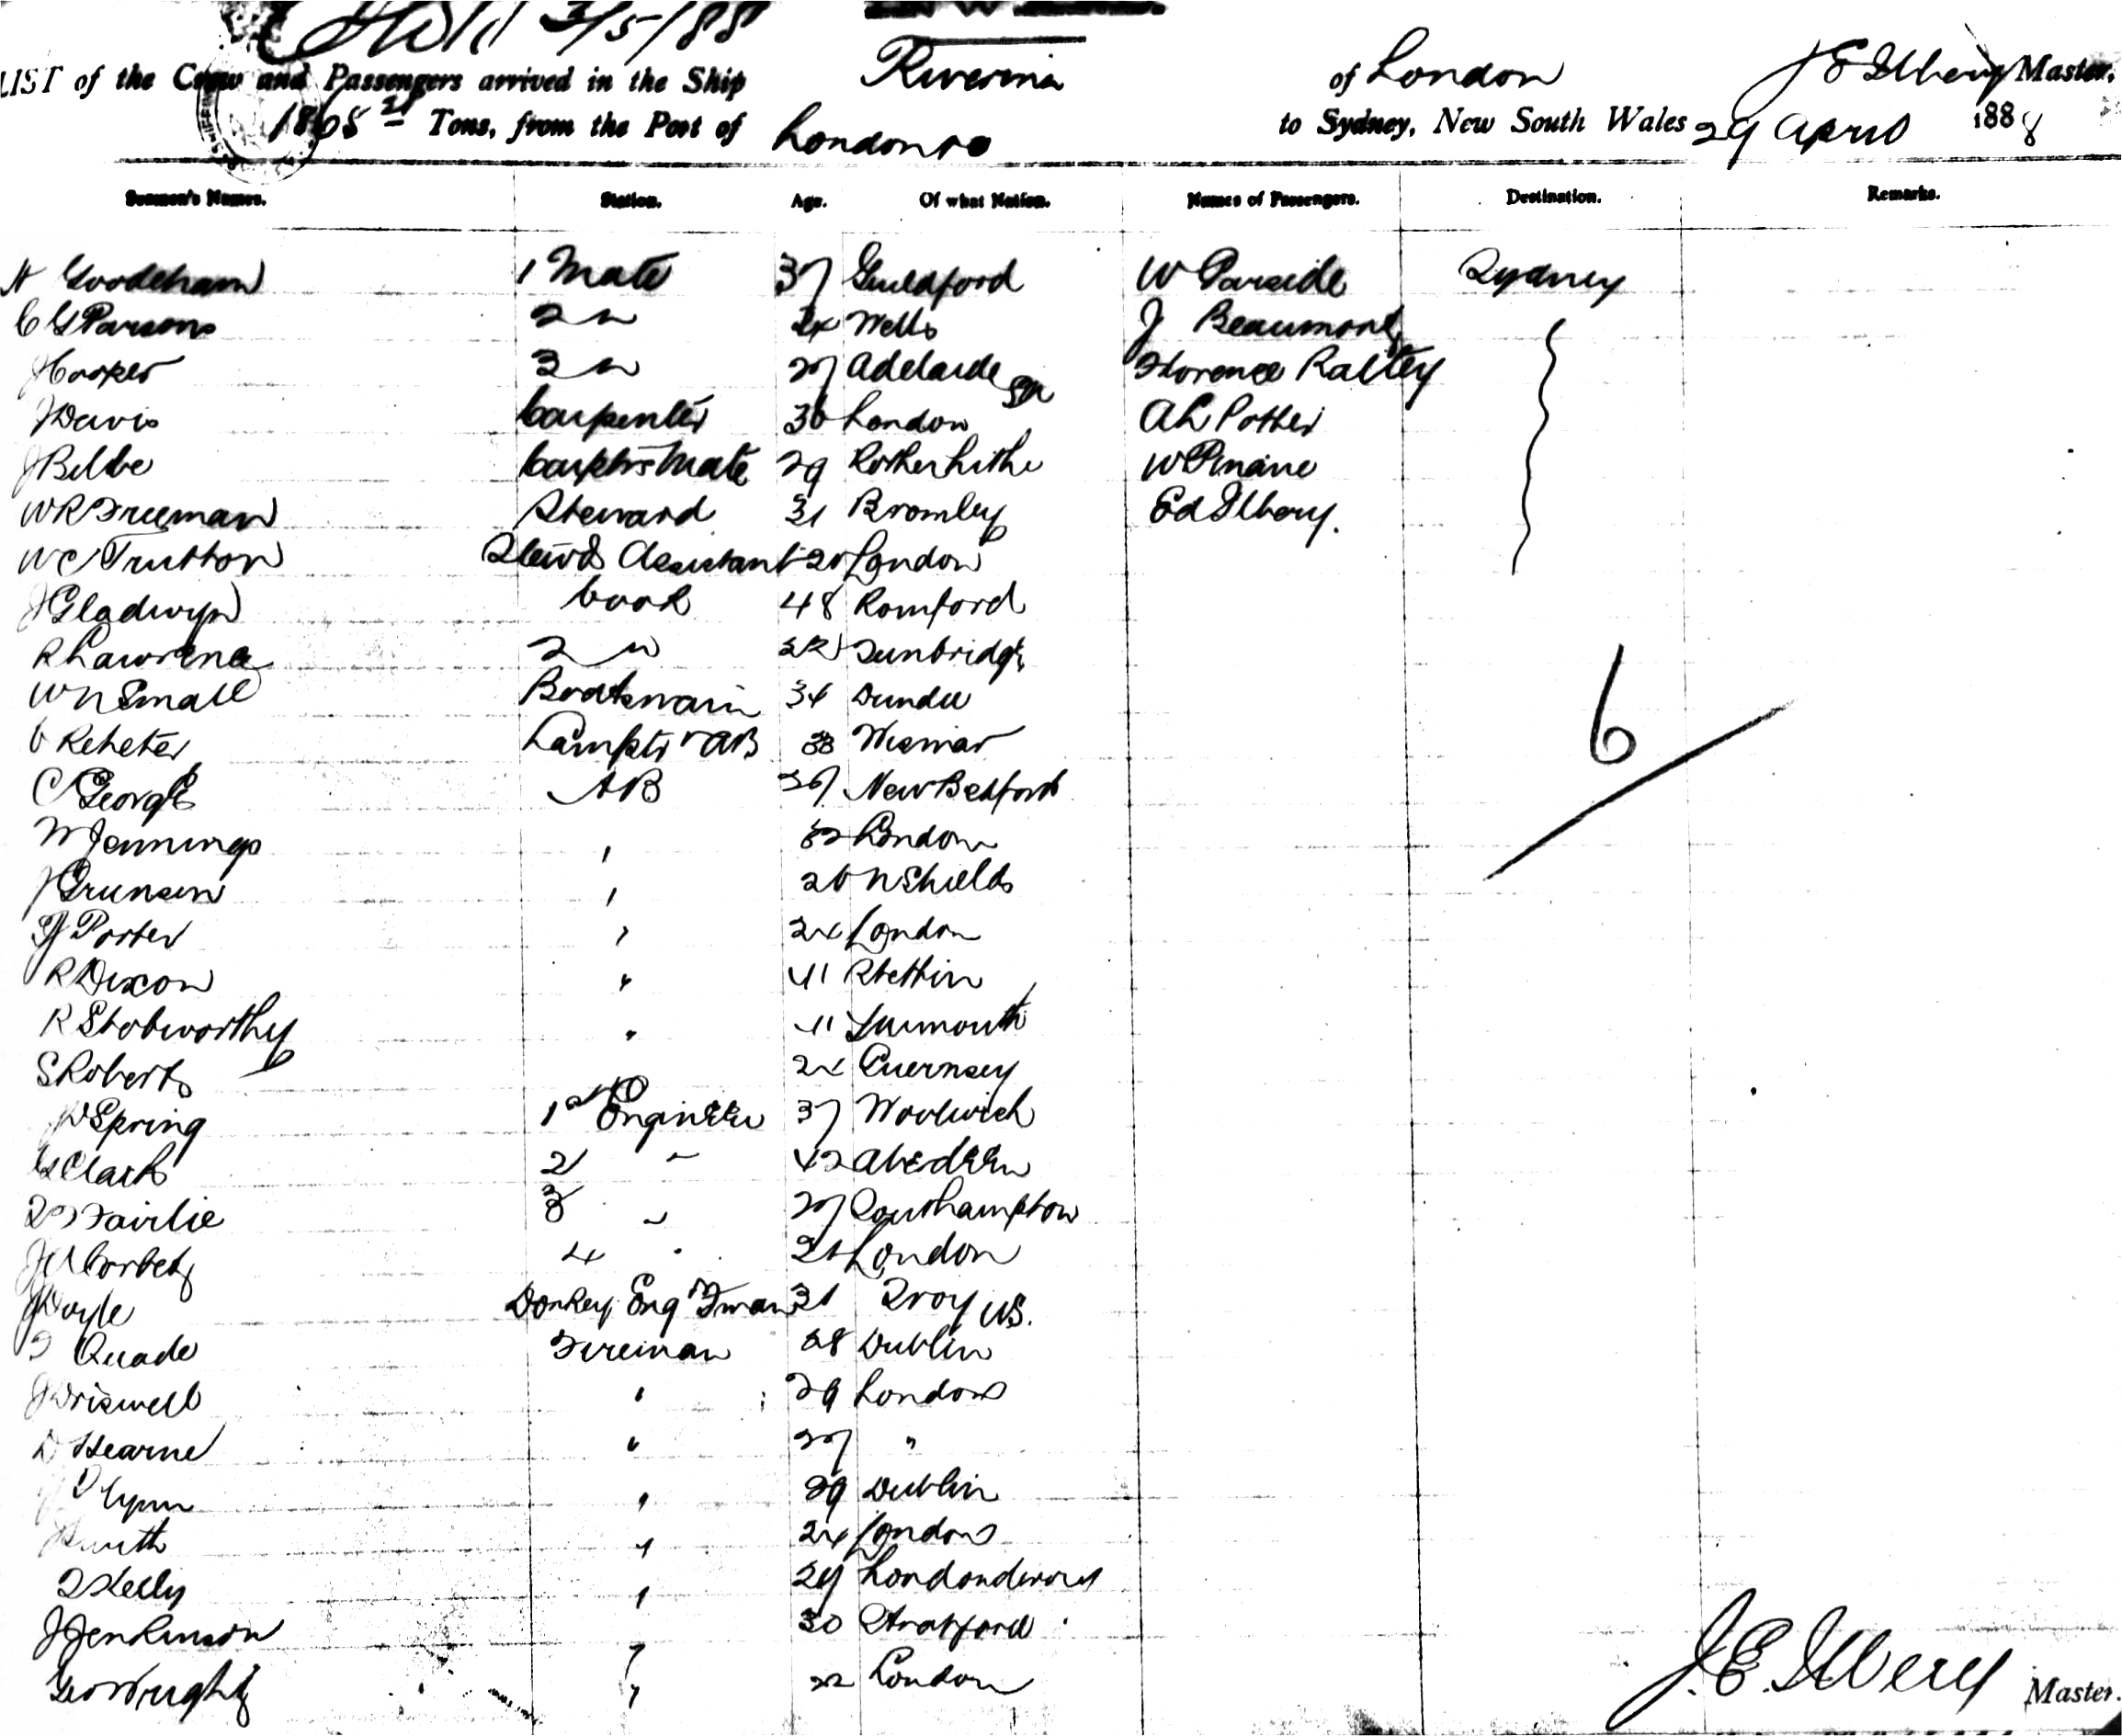 3/5/88
LIST of the Crew and Passengers arrived in the Ship Riverina of London J E Ilbery Master,
Tons, from the Port of London to Sydney, New South Wales 29 April 1888
Seamen's Names. Station. Age. Of what Nation. Names of Passengers. Destination. Remarks.
Goodeham 1 Mate 37 Guildford W Sydney
C G Parsons 2 " 24 Wells J Beaumont
J Cooper 3 " 27 Adelaide SA Florence Raltey
J Davis Carpenter 36 London A L Potter
J Bilbe Carptrs Mate 29 Rotherhithe W
W R Freeman Steward 31 Bromley Ed Ilbery.
W C Trutton Stewds Assistant 20 London
J Gladwyn Cook 48 Romford
R Lawrence 2 " 22 Tunbridge
W N Small Boatswain 34 Dundee
Lamptr & AB 33 Wismar
C George AB 37 New Bedford
W Jennings " London
J Grunsen " 26 N Shields
Porter " 24 London
R Dixon " 41 Stettin
R Stobworthy " 41 Yarmouth
S Roberts " 24 Guernsey
W Spring 1st Engineer 37 Woolwich
G Clark 2 " 42 Aberdeen
Fairlie 3 " 27 Southampton
Corbet 4 " London
J Doyle Donkey Engr Fman 31 Troy US.
Quade Fireman 28 Dublin
J Driswell " 29 London
D Hearne " 27 "
Flynn " 29 Dublin
Smith " 24 London
T Kelly " 29 Londonderry
J Jenkinson " 30 Stratford
Geo Wright " 22 London
6
J. E. Ilbery Master.